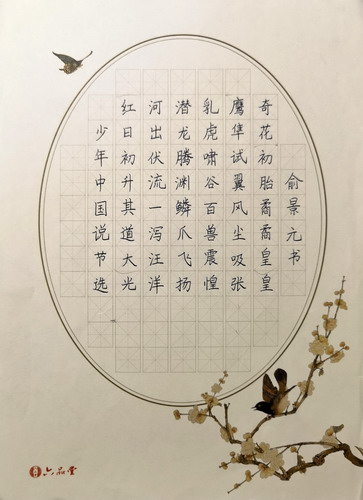 少年中国说节选
红日初升其道大光
河出伏流一泻汪洋
潜龙腾渊鳞爪飞扬
乳虎啸谷百兽震惶
鹰隼试翼风尘吸张
奇花初胎矞矞皇皇
俞景元书
六品堂